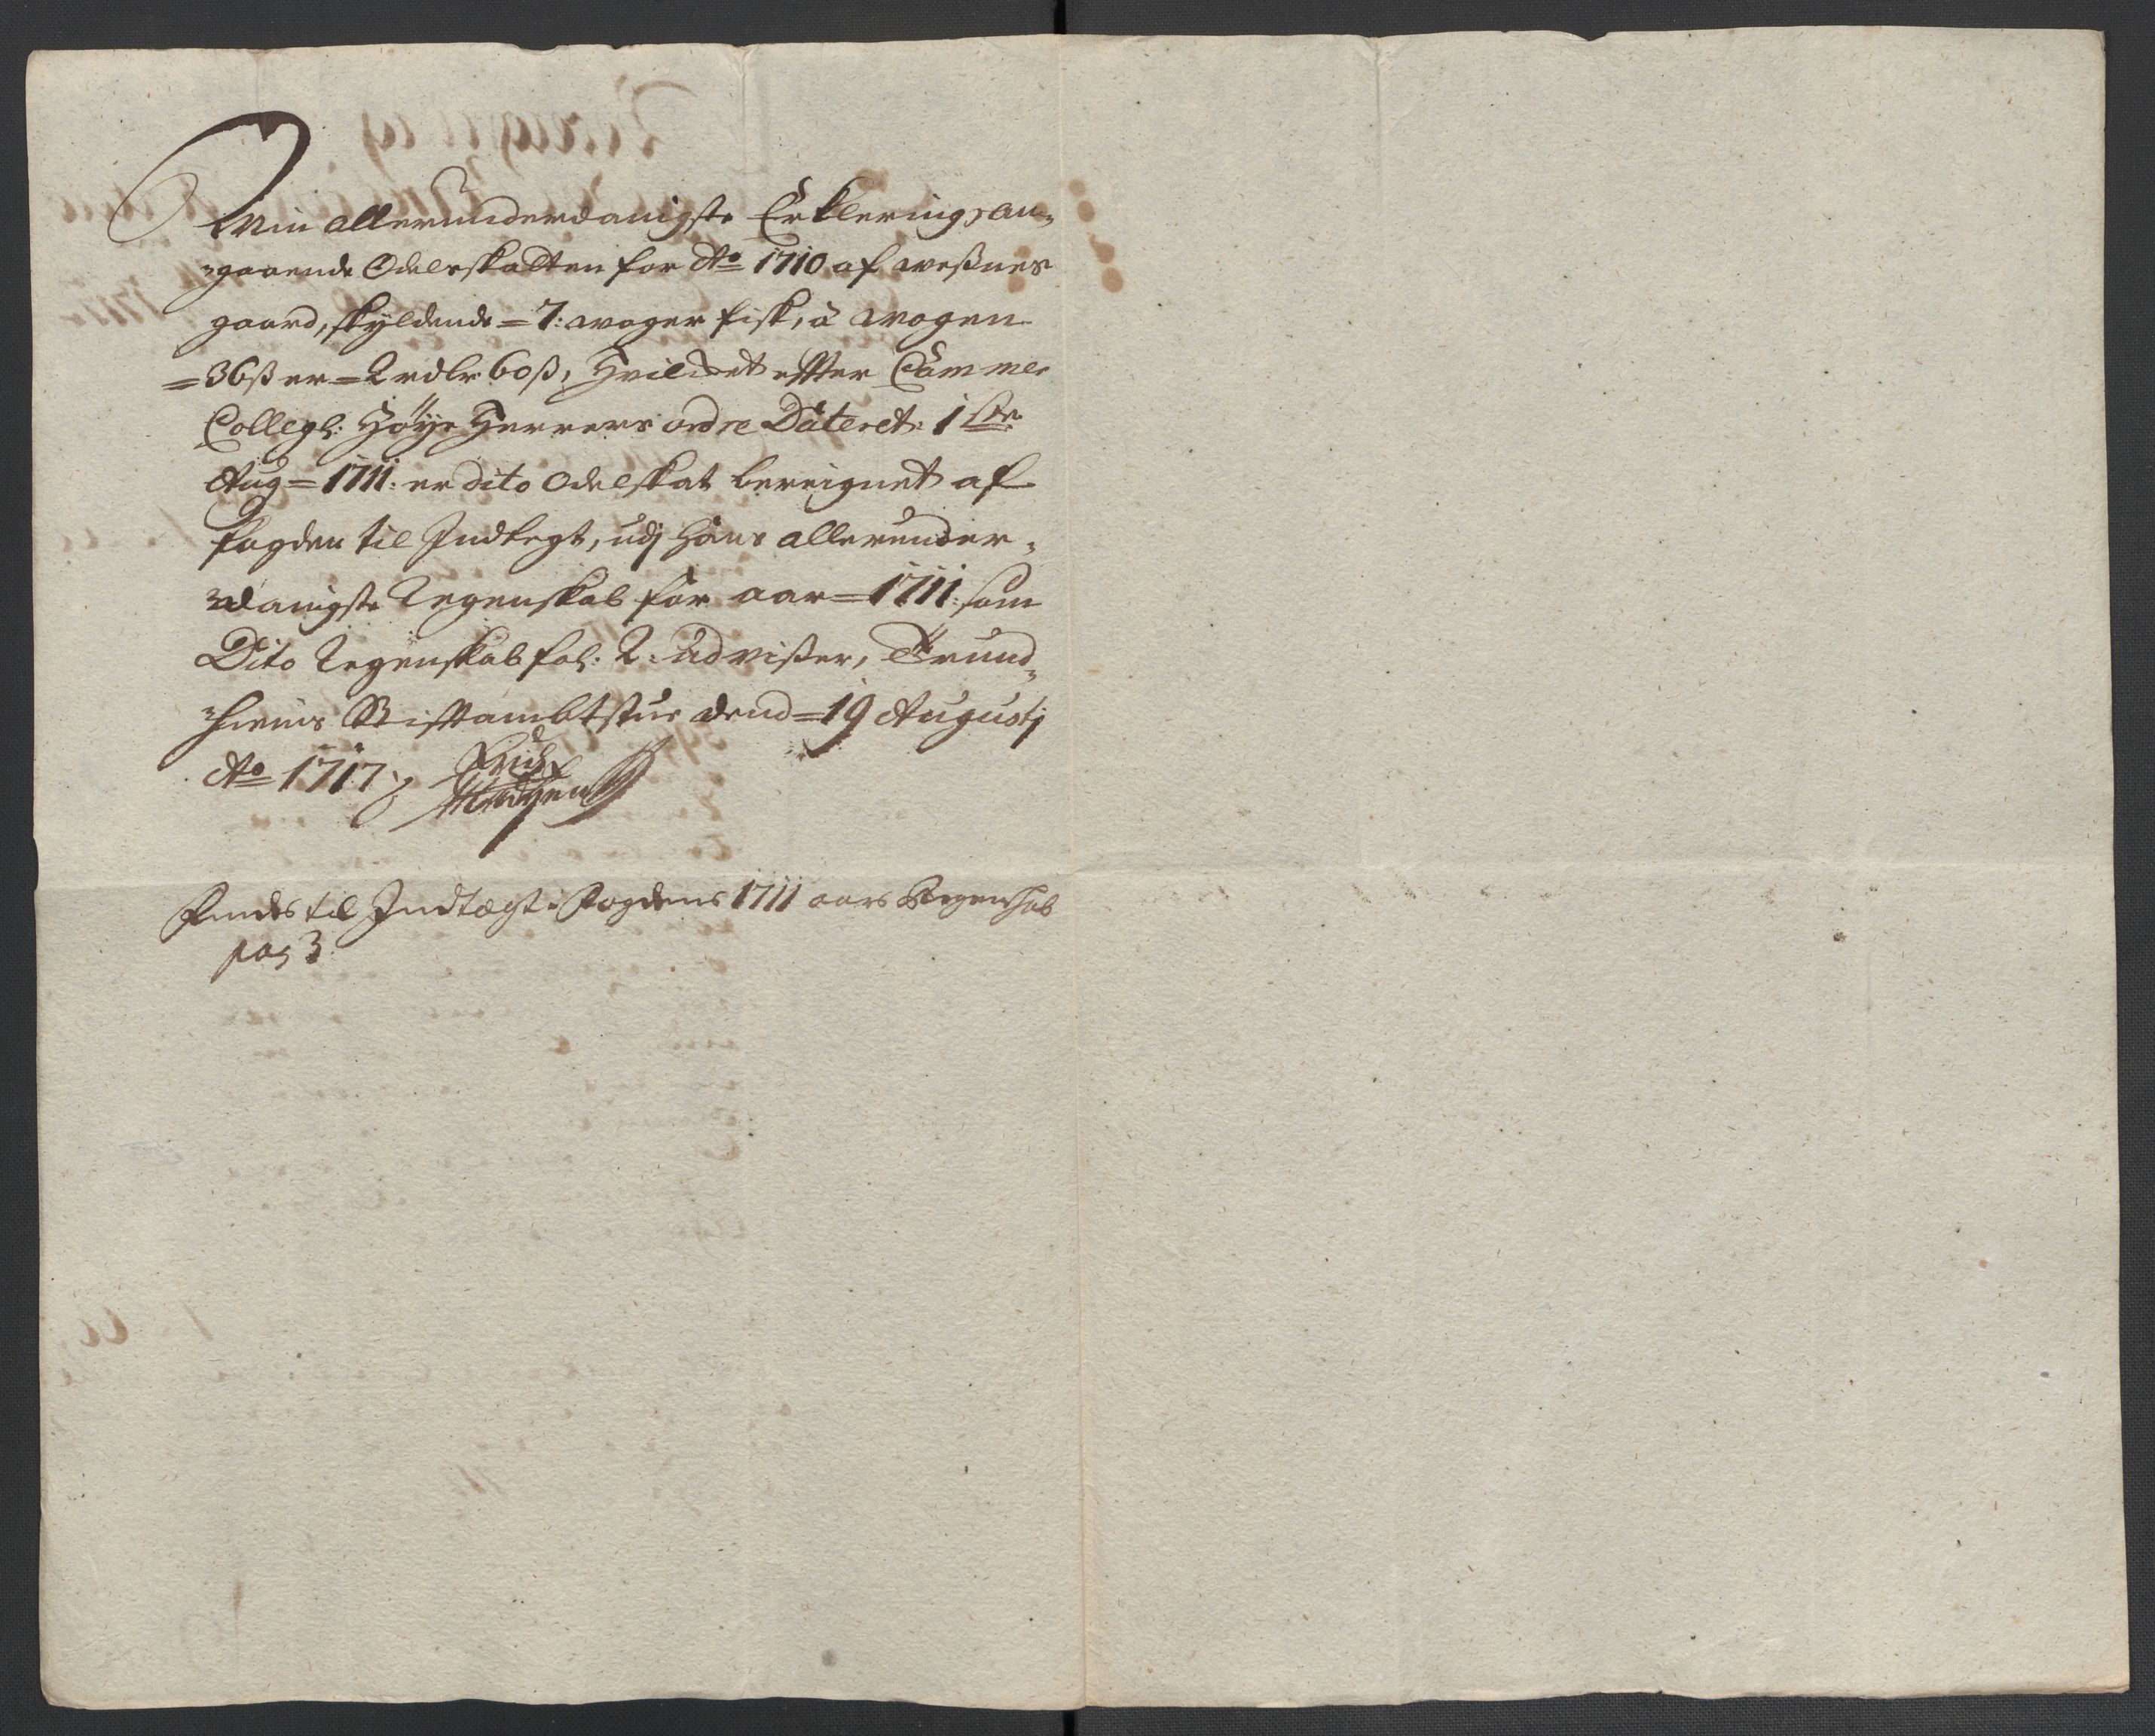 Min allerunderdanigste Erklering, an-
-gaaende Odelsskatten for Ao 1710 af weßnes
gaard, skyldende = 7: woger fisk, à wogen
= 36ß er = 2 rdlr 60ß, Hvilket effter Cammer
Collegi: Høÿe Herrers ordre Dateret: 1ste
Aug = 1711: er dito Odelskat bereignet af
fogden til Indtegt, udj hans allerunder-
-danigste Regenskab for aar = 1711: som
Dito Regenskab fol: 2: udvißer, Trund-
-hiems Stiftambtstue dend = 19 Augustj
Ao 1717
Findes til Indtægt i Fogdens 1711 aars Regenskab
pag 3